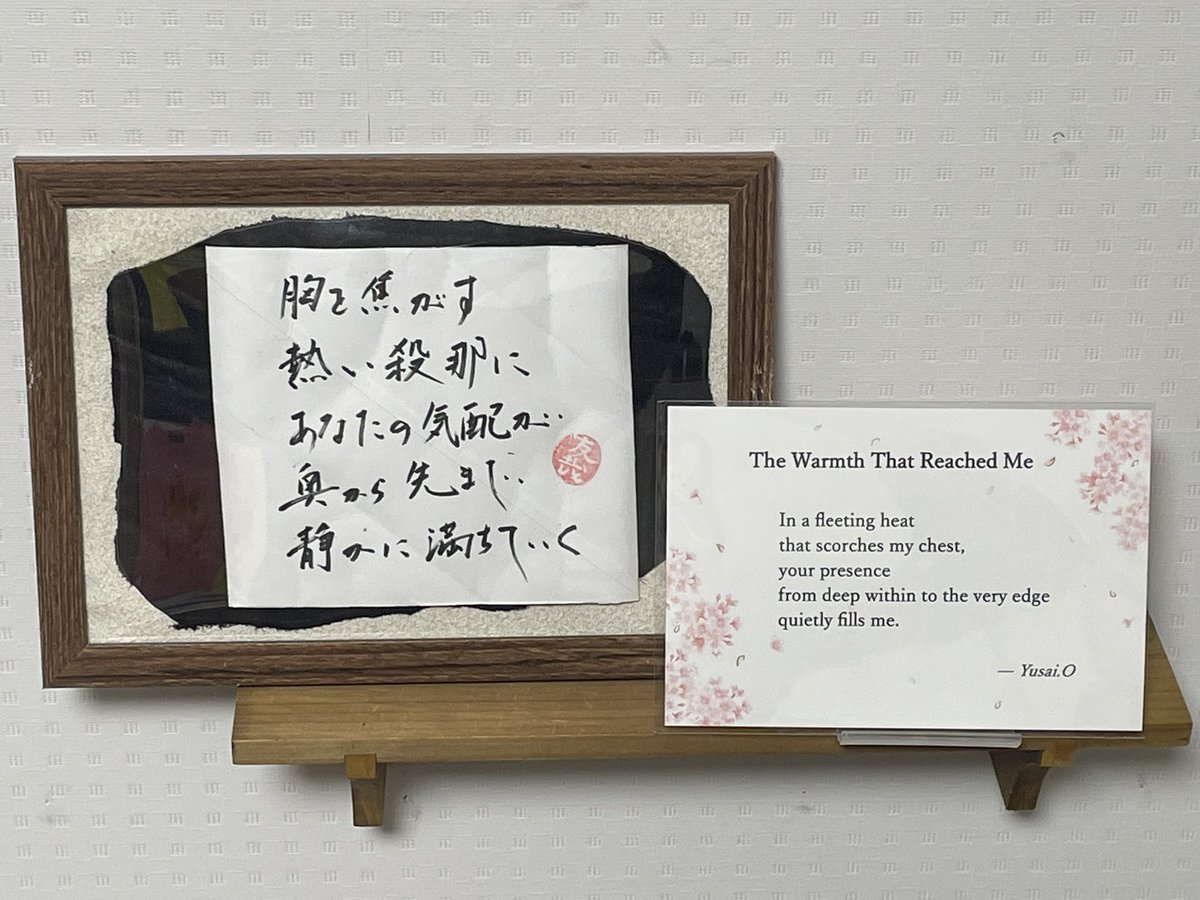 胸を焦がす
熱い殺那に
あなたの気配が
奥から先まで
静かに満ちていく
The Warmth That Reached Me
In a fleeting heat
that scorches my chest,
your presence
from deep within to the very edge
quietly fills me.
— Yusai.O